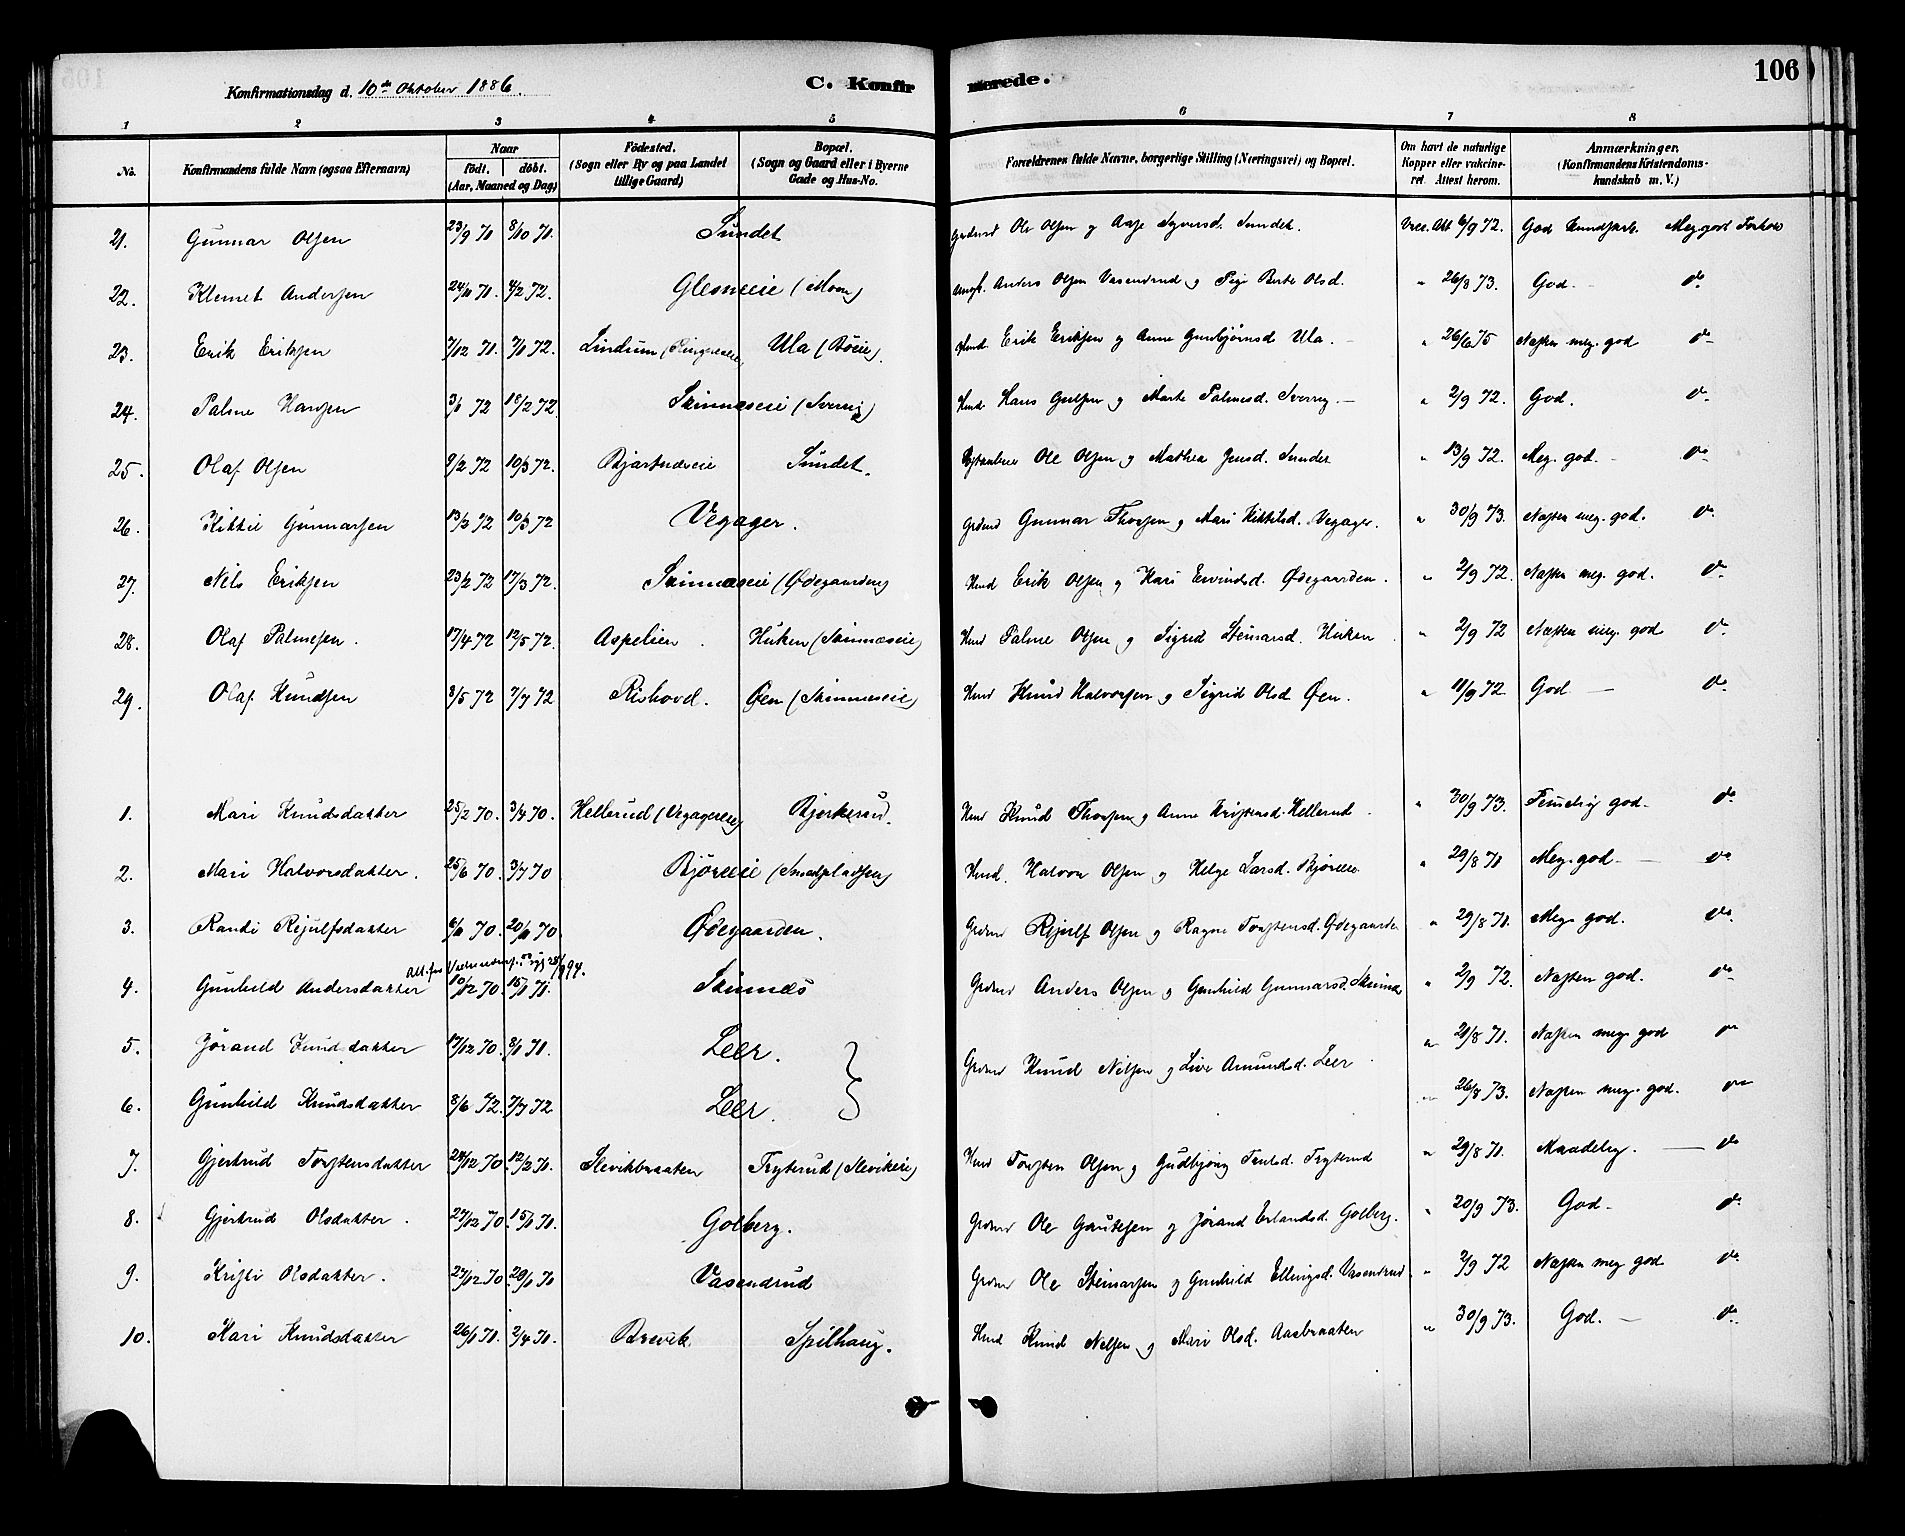 Konfirmationsdag d. 10de Oktober 1886. C. Konfir merede. 106
1 2 3 4 5 6 7 8
No. Konfirmandens fulde Navn (ogsaa Efternavn) Naar födt. döbt. (Aar, Maaned og Dag) Födested. (Sogn eller By og paa Landet tillige Gaard) Bopæl. (Sogn og Gaard eller i Byerne Gade og Hus-No. Forældrenes fulde Navne, borgerlige Stilling (Næringsvei) og Bopæl. Om havt de naturlige Kopper eller vakcineret. Attest herom. Anmærkninger. (Konfirmandens Kristendomskundskab m. V.)
21. Gunnar Olsen 23/9 70 8/10 70. Sundet Grdmd Ole Olsen og Aase Syversd. Sundet. Vacc. Att 6/9 72. God Kundskab. Meg. god Forhold
22. Klemet Andersen 4/2 72. Glesneeie (Moen) Anders Olsen Vasendrud og Berte Olsd. " 26/8 73. God. do
23. Erik Eriksen 7/12 71. 7/1 72. Lindum Ula (Böeie). Hmd. Erik Eriksen og Anne Gunbjørnsd Ula. " 26/6 75 Næsten meg. god do
24. Palme Hansen 3/1 72 18/2 72 Skinnæseie Hmd Hans og Marte Palmesd. " 2/9 72. God. do
25. Olaf Olsen 9/2 72 10/3 72. Sundet. Ole Olsen og Mathea Jensd. Sundet " 13/9 72. Meg. god. do
26. Kittil Gunnarsen 13/2 72 10/3 72 Vegager. Grdmd Gunnar Thorsen og Mari Kittilsd. Vegager. " 30/9 73. Næsten meg. god. do
27. Nils Eriksen 23/2 72 17/3 72. Skinnæseie (Ødegaarden) Hmd Erik Olsen og Kari Eivindsd. Ødegaarden. " 2/9 72. Næsten meg. god. do
28. Olaf Palmesen. 17/4 72 12/5 72. Aspelien. Huken (Skinnæseie) Hmd Palme Olsen og Sigrid Steinarsd. Huken " 2/9 72 Næsten meg. god do
29. Olaf Knudsen 8/5 72 7/7 72 Rishovd. Øen (Skinnæseie) Hmd Knud Halvorsen og Sigrid Olsd Øen. " 11/9 72 God do
1. Mari Knudsdatter 25/2 70. 3/4 70. Hellerud (Vegagereie) Bjerkerud. Hmd Knud Thorsen og Anne Kristensd. Hellerud " 30/9 73. Temelig god. do
2. Mari Halvorsdatter. 25/6 70. 3/7 70 Bjøreeie (Smedpladsen) Hmd. Halvor Olsen og Helge Larsd. Bjøreeie " 29/8 71 Meg. god. do
3. Randi Rejulfsdatter 6/11 70. 20/11 70. Ødegaarden. Grdmd Rejulf Olsen og Ragne Torstensd. Ødegaarden " 29/8 71. Meg. god. do
4. Gunhild Andersdatter 10/12 70. 15/1 71. Skinnes Grdmd Anders Olsen og Gunhild Gunnarsd. Skinnes " 2/9 72. Næsten god. do
5. Jørand Knudsdatter 17/12 70. 8/1 71. Leer. Grdmd Knud Nilsen og Live Amundsd. Leer " 21/8 71. Næsten meg. god do
6. Gunhild Knudsdatter 8/6 72. 7/7 72 Leer. " 26/8 73. Næsten meg. god. do
7. Gjertrud Torstensdatter 24/12 70. 12/2 71. Slevikbraaten Tryterud (Slevikeie) Hmd Torsten Olsen og Gudbjørg Trulsd. Tryterud " 29/8 71. Maadelig. do
8. Gjertrud Olsdatter. 27/12 70. 15/1 71. Golberg. Grdmd Ole Gautesen og Jørand Erlandsd. Golberg. " 20/9 73. God. do
9. Kristi Olsdatter. 27/12 70. 29/1 71 Vasendrud Grdmd Ole Steinarsen og Gunhild Ellingsd. Vasendrud " 2/9 72 Næsten meg god do
10. Kari Knudsdatter 26/1 71. 2/4 71. Brevik. Spilhaug. Hmd Knud Nilsen og Mari Olsd. Aasbraaten " 30/9 73. God. do